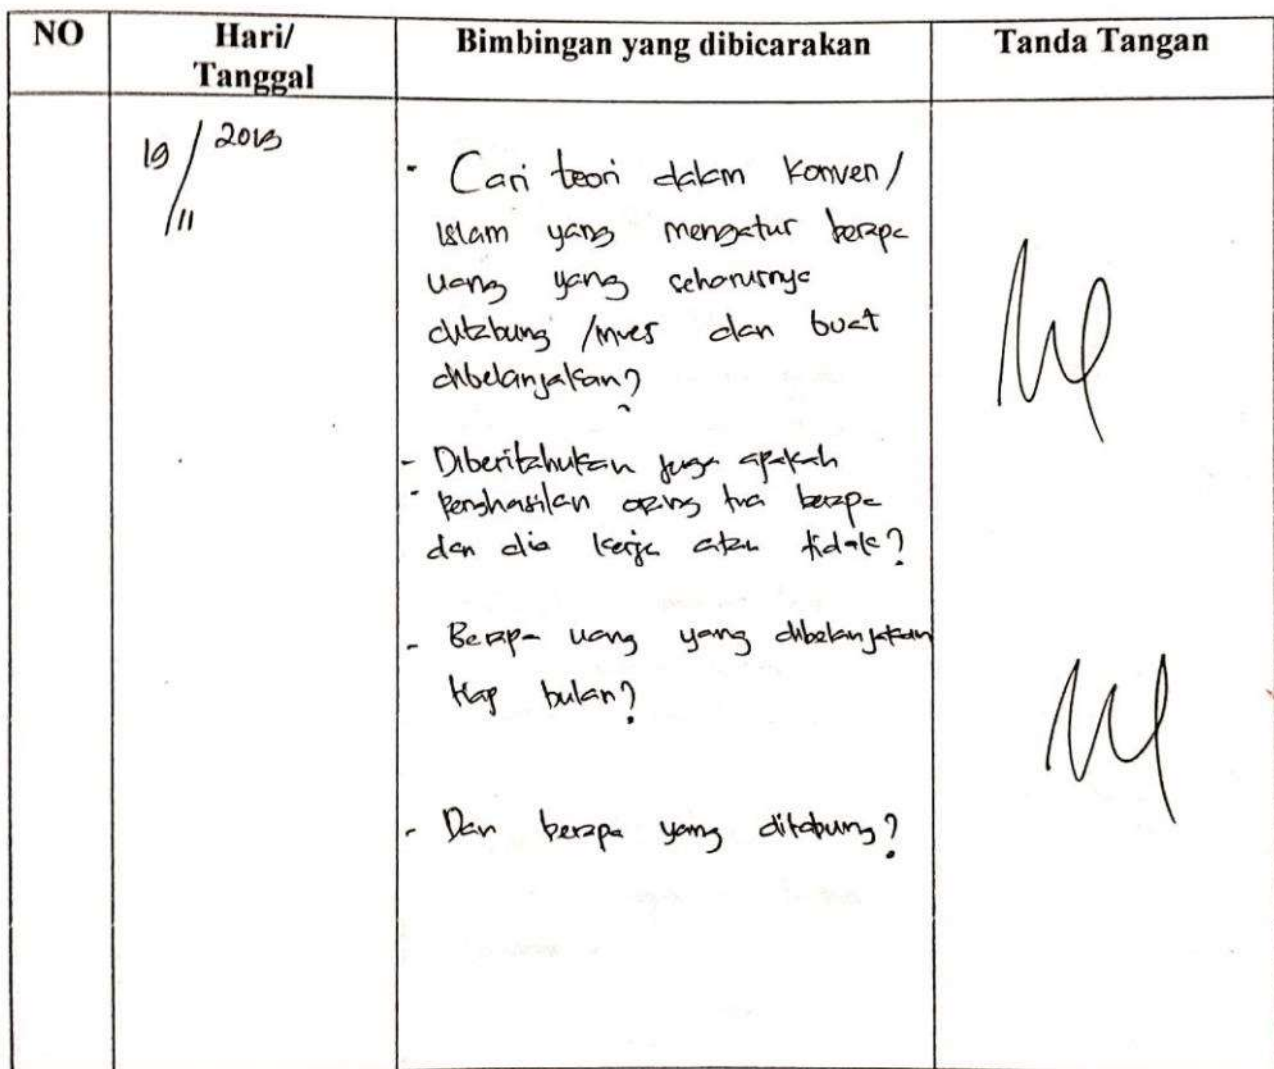 NO
Hari/
Tanggal
Bimbingan yang dibicarakan
Tanda Tangan
19 / 11 2013
- Cari teori dalam Konven/
Islam yang mengatur berapa
uang yang seharusnya
ditabung /inves dan buat
dibelanjakan?
- Diberitahukan juga apakah
- Penghasilan orang tua berapa
dan dia kerja atau tidak?
- Berapa uang yang dibelanjakan
tiap bulan?
- Dan berapa yang ditabung?